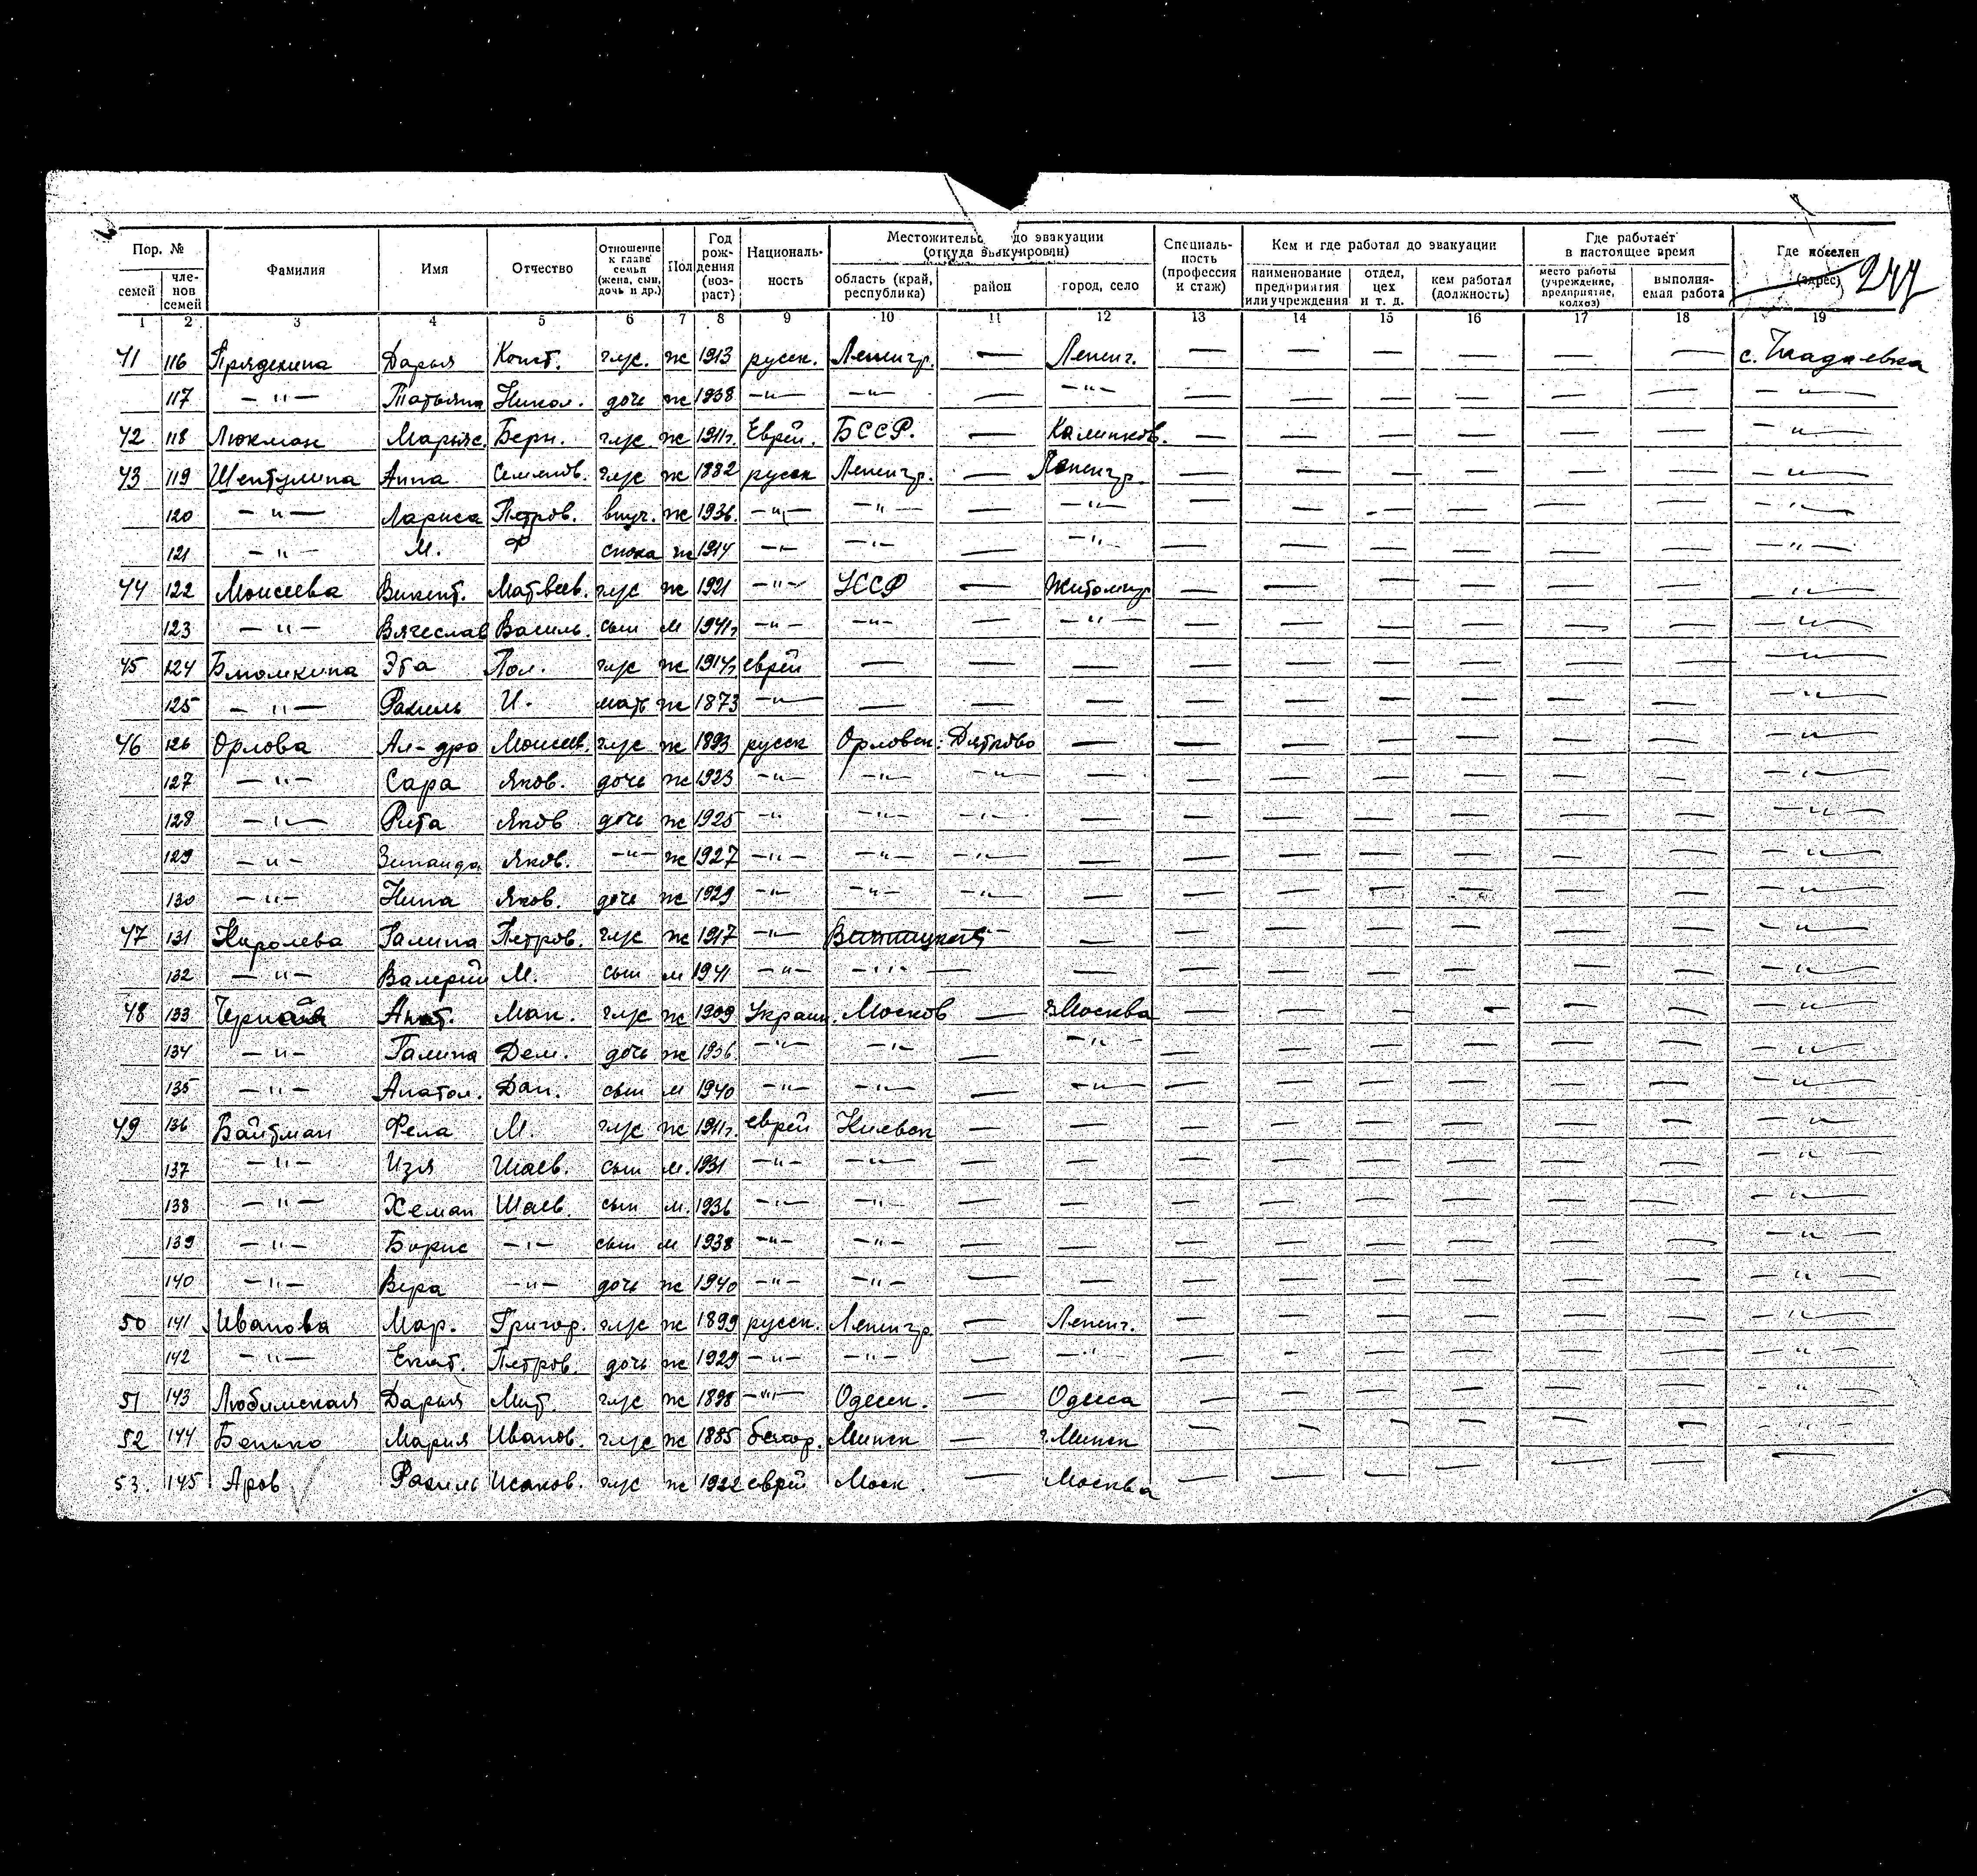 Пор. № | Фамилия | Имя | Отчество | Отношение к главе семьи (жена, сын, дочь и др.) | Пол | Год рождения (возраст) | Национальность | Местожительс до эвакуации (откуда эвакуирован) | Специальность (профессия и стаж) | Кем и где работал до эвакуации | Где работает в настоящее время | Где поселен (адрес) 244
семей | членов семей | область (край, республика) | район | город, село | наименование предприятия или учреждения | отдел, цех и т. д. | кем работал (должность) | место работы (учреждение, предприятие, колхоз) | выполняемая работа
1 2 3 4 5 6 7 8 9 10 11 12 13 14 15 16 17 18 19
41 116 Прядекина Дарья Конст. глс. ж 1913 русск. Ленингр. — Ленинг. — — — — — — с.
117 —"— Татьяна Никол. дочь ж 1938 —"— —"— — —"— — — — — — — —"—
42 118 Люкман Берн. глс ж 1911г. Еврей. БССР. — Калинков. — — — — — — —"—
43 119 Шептулина Анна Семенов. глс ж 1882 русск Ленингр. — Ленингр. — — — — — — —"—
120 —"— Лариса Петров. внуч. ж 1936. —"— —"— — —"— — — — — — — —"—
121 —"— М. Ф сноха ж 1914 —"— —"— — —"— — — — — — — —"—
44 122 Моисеева Викент. Матвеев. глс ж 1921 —"— УССР — Житомир — — — — — — —"—
123 —"— Вячеслав Василь. сын м 1941г —"— —"— — —"— — — — — — — —"—
45 124 Блюмкина Эта Пол. глс ж 1914г еврей — — — — — — — — — —"—
125 —"— Рахиль И. мать ж 1873 —"— — — — — — — — — — —"—
46 126 Орлова Ал-дра Моисеев. глс ж 1893 русск Орловск. Дятково — — — — — — — —"—
127 —"— Сара Яков. дочь ж 1923 —"— —"— —"— — — — — — — — —"—
128 —"— Рита Яков дочь ж 1925 —"— —"— —"— — — — — — — — —"—
129 —"— Зинаида Яков. —"— ж 1927 —"— —"— —"— — — — — — — — —"—
130 —"— Нина Яков. дочь ж 1929 —"— —"— —"— — — — — — — — —"—
47 131 Королева Галина Петров. глс ж 1917 —"— — — — — — — — —"—
132 —"— Валерий М. сын м 1941 —"— —"— — — — — — — — — —"—
48 133 Анат. Мак. глс ж 1909 Украин. Москов — г.Москва — — — — — — —"—
134 —"— Галина Дем. дочь ж 1936 —"— —"— — —"— — — — — — — —"—
135 —"— Анатол. Дан. сын м 1940 —"— —"— — —"— — — — — — — —"—
49 136 Байтман Фела М. глс ж 1911г. еврей Киевск — — — — — — — — —"—
137 —"— Изя Шаев. сын м. 1931 —"— —"— — — — — — — — — —"—
138 —"— Хеман Шаев. сын м. 1936 —"— —"— — — — — — — — — —"—
139 —"— Борис —"— сын м 1938 —"— —"— — — — — — — — — —"—
140 —"— Вера —"— дочь ж 1940 —"— —"— — — — — — — — — —"—
50 141 Иванова Мар. Григор. глс ж 1899 русск. Ленингр. — Ленинг. — — — — — — —"—
142 —"— Екат. Петров. дочь ж 1929 —"— —"— — —"— — — — — — — —"—
51 143 Любимская Дарья Мит. глс ж 1898 —"— Одесск. — Одесса — — — — — — —"—
52 144 Бенько Мария Иванов. глс ж 1885 белор. Минск — г.Минск — — — — — — —"—
53. 145 Аров Рахиль Исаков. глс ж 1922 еврей Моск. — Москва — — — — — — —